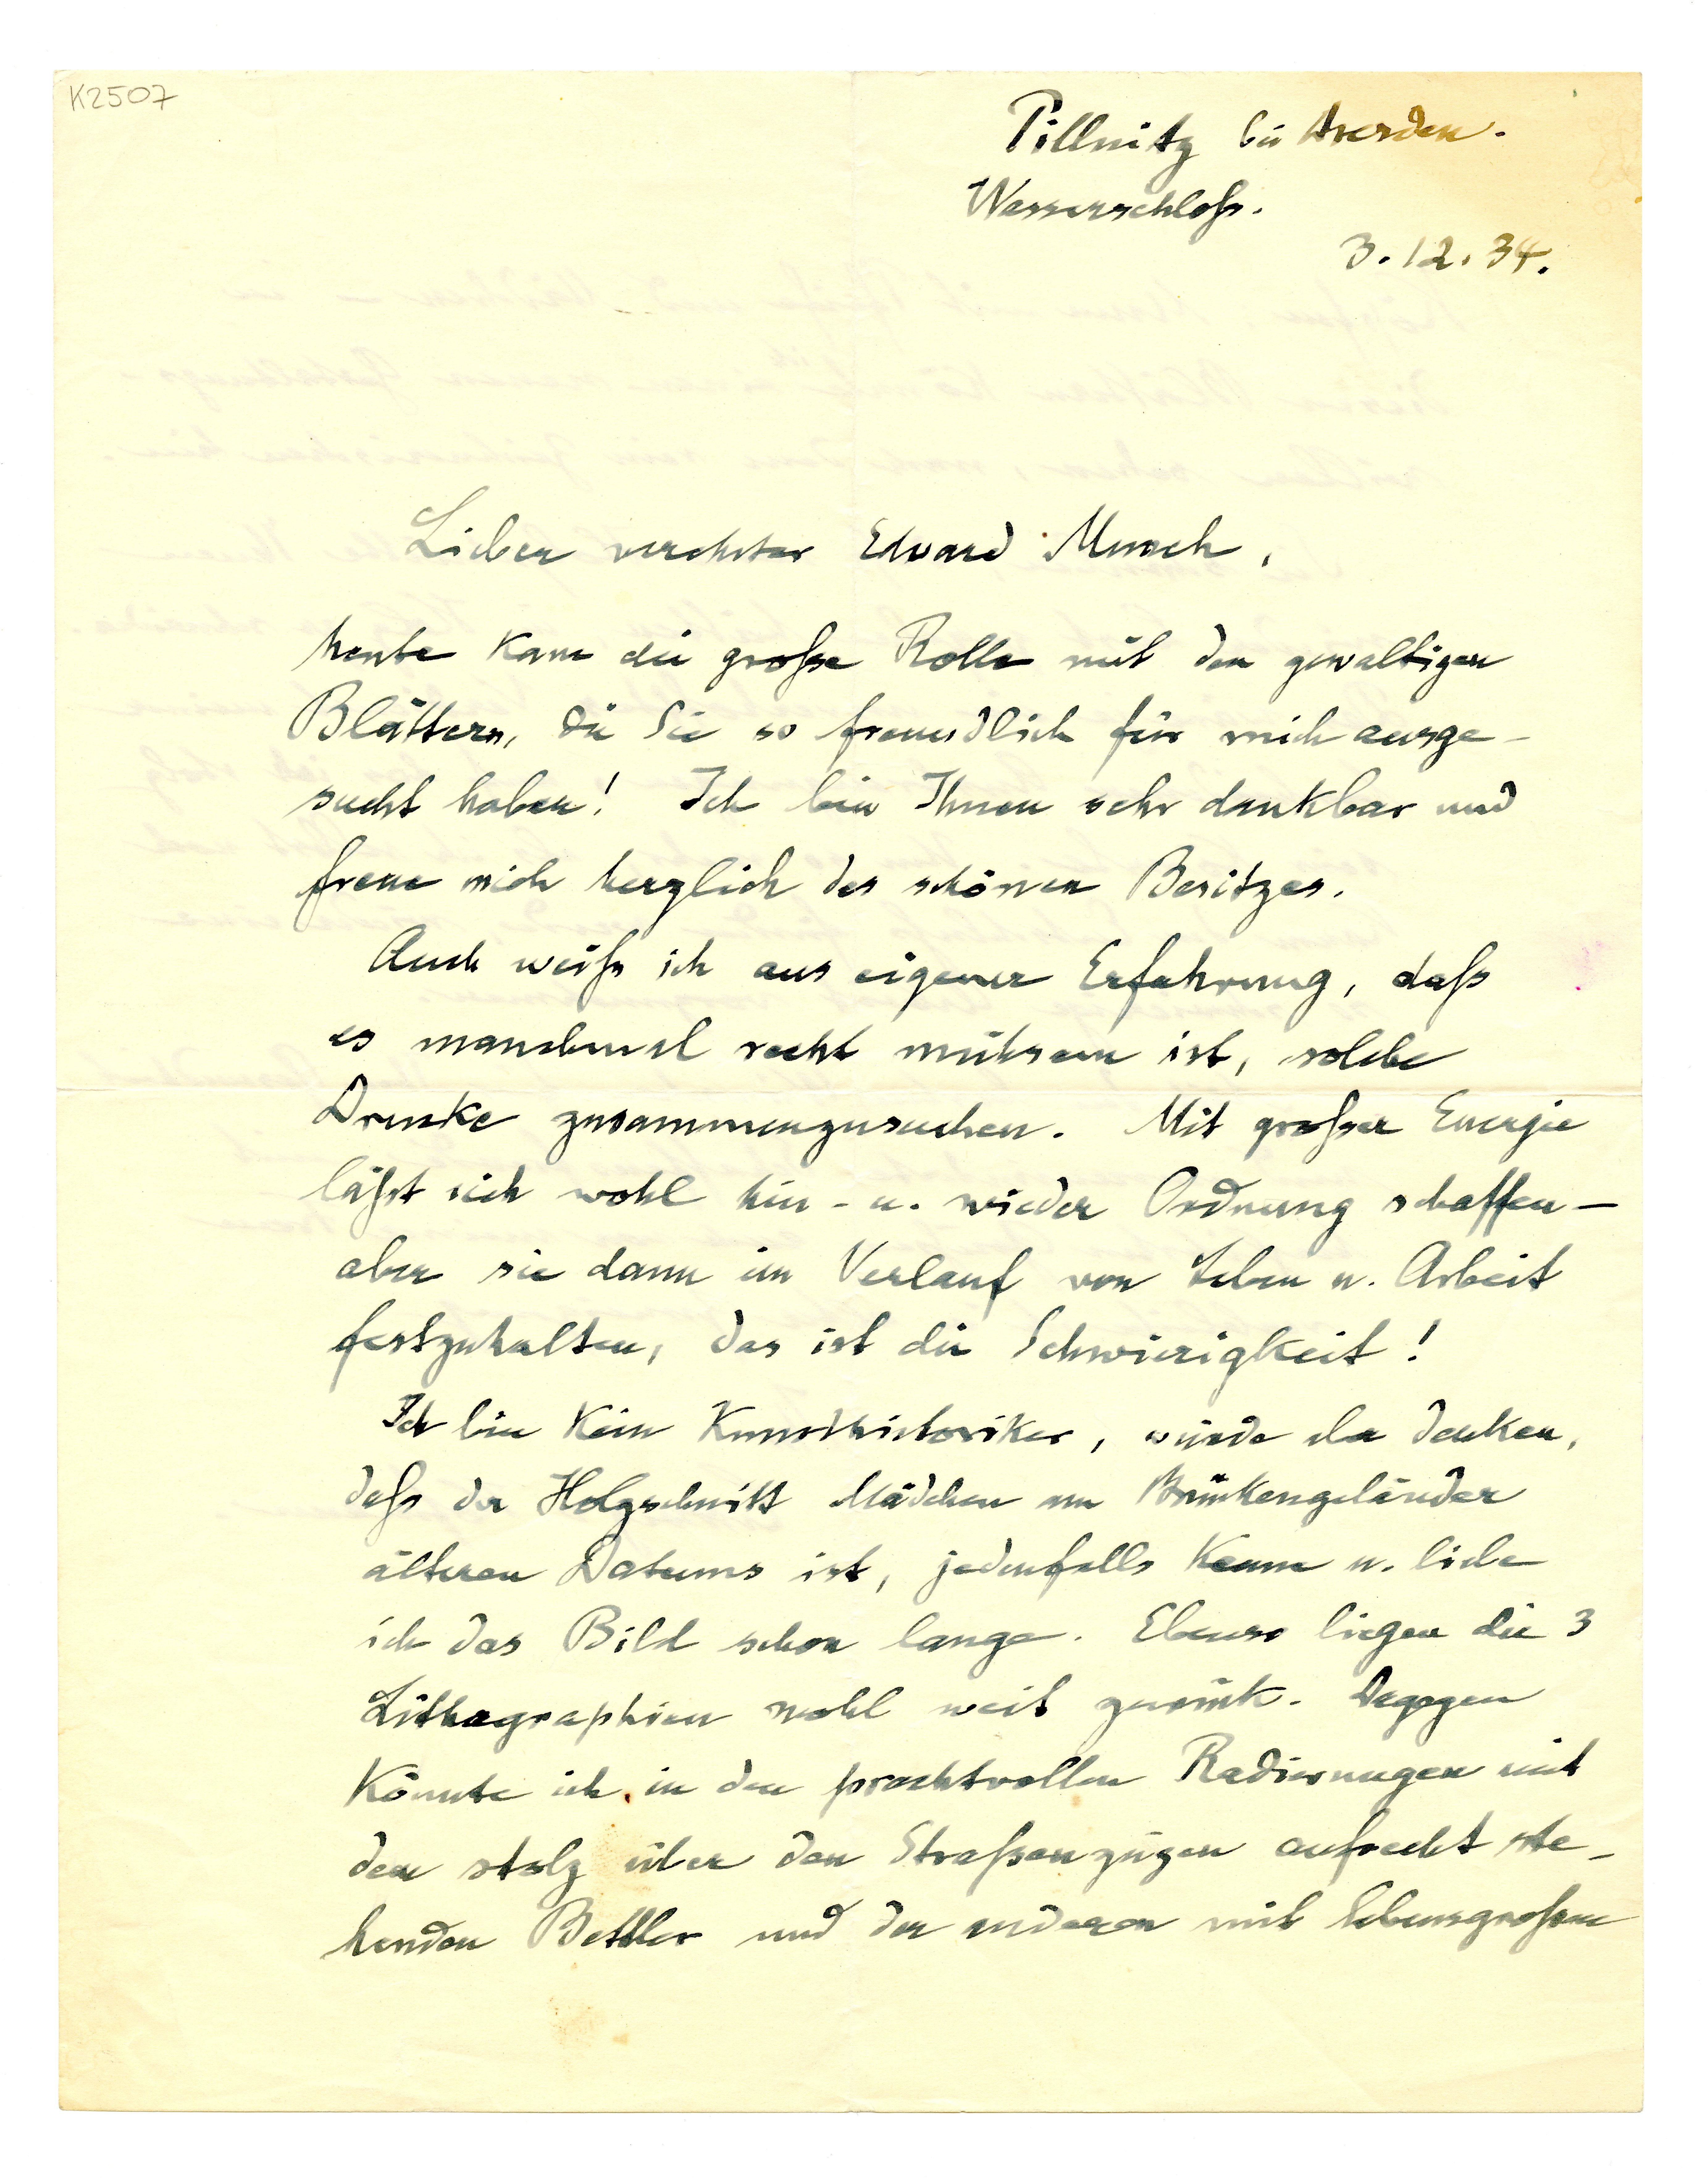 K2507
Pillnitz bei Dresden.
Wasserschloß.
3.12.34.
Lieber verehrter Edvard Munch,
heute kam die große Rolle mit den gewaltigen
Blättern, die Sie so freundlich für mich ausge-
sucht haben! Ich bin Ihnen sehr dankbar und
freue mich herzlich des schönen Besitzes.
Auch weiß ich aus eigener Erfahrung, daß
es manchmal recht mühsam ist, solche
Drucke zusammenzusuchen. Mit großer Energie
läßt sich wohl hin- u. wieder Ordnung schaffen –
aber sie dann im Verlauf von Leben u. Arbeit
festzuhalten, das ist die Schwierigkeit!
Ich bin kein Kunsthistoriker, würde aber denken,
daß der Holzschnitt Mädchen am Brückengeländer
älteren Datums ist, jedenfalls kenne u. liebe
ich das Bild schon lange. Ebenso liegen die 3
Lithographien wohl weit zurück. Dagegen
könnte ich in den prachtvollen Radierungen mit
dem stolz über den Straßenzügen aufrecht ste-
henden Bettler und der anderen mit lebensgroßen